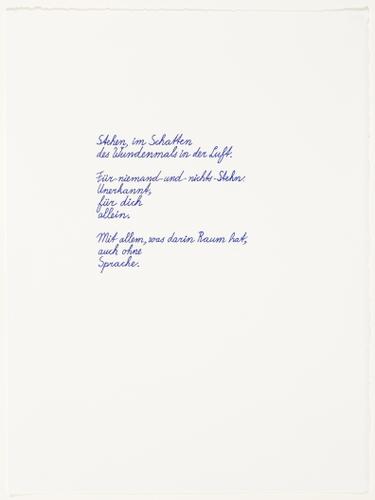 Stehen, im Schatten
des Wundenmals in der Luft.
Für-niemand-und-nichts-Stehn.
Unerkannt,
für dich
allein.
Mit allem, was darin Raum hat,
auch ohne
Sprache.